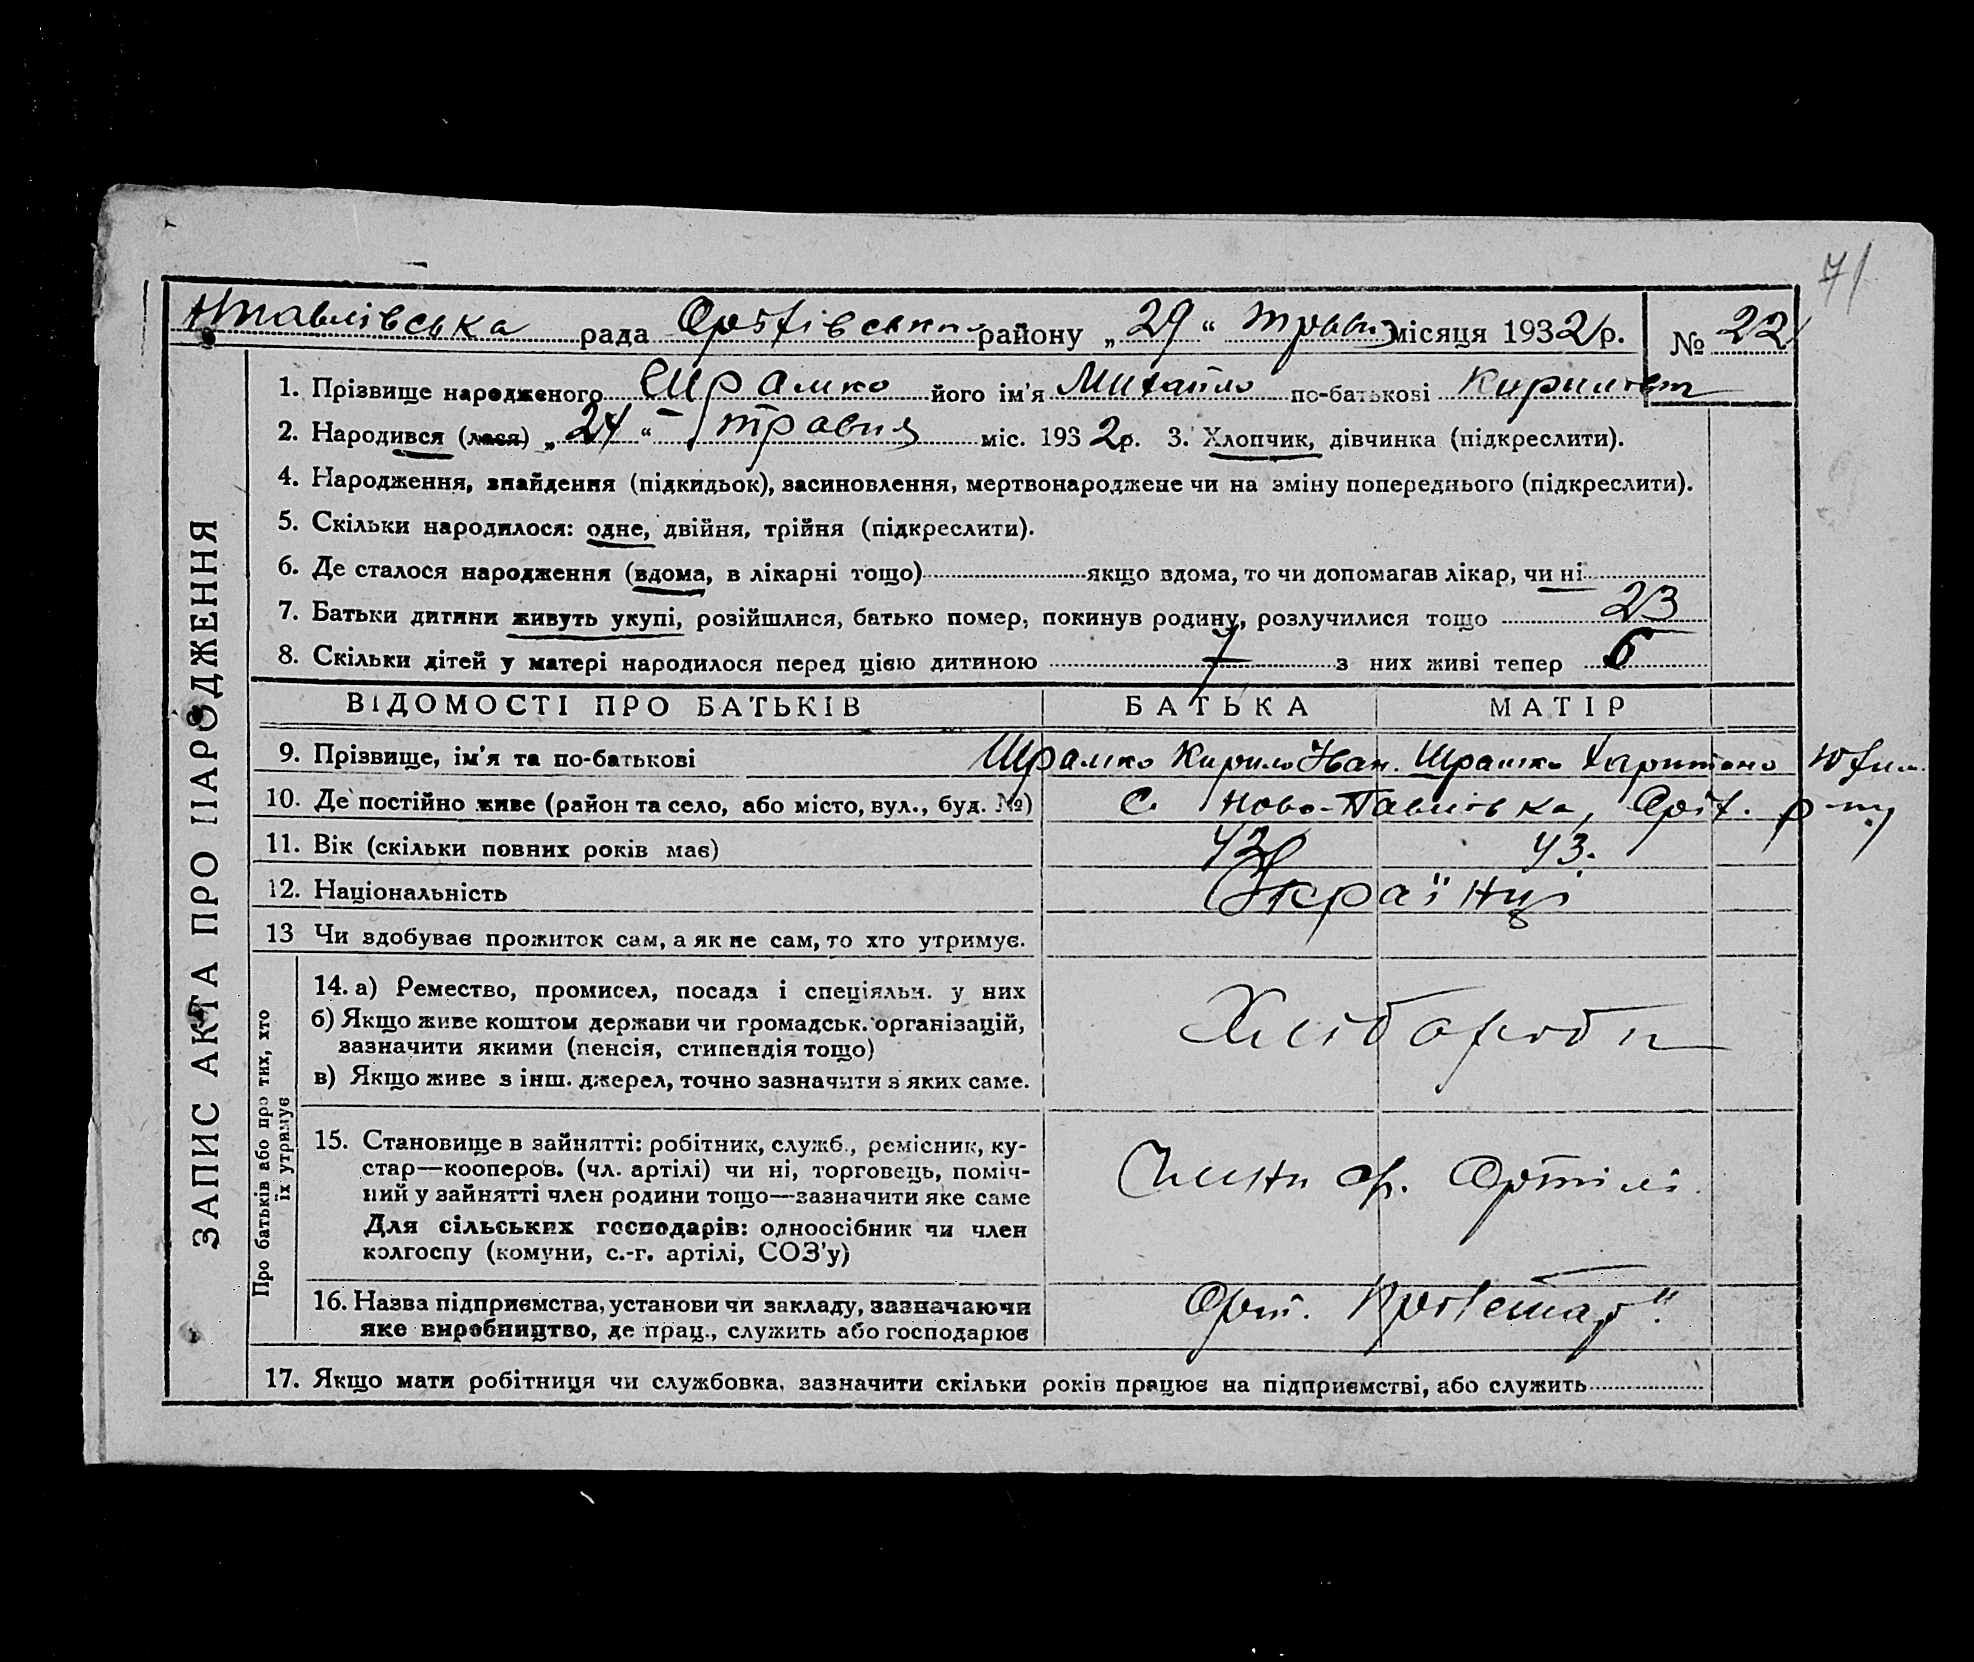 71
Нпавлівська рада Оріхівського району „29“ травня місяця 1932 р. № 22
1. Прізвище народженого Шрамко його ім'я Михайло по-батькові Кирилов
2. Народився (лася) „24“ травня міс. 1932р. 3. Хлопчик, дівчинка (підкреслити).
4. Народження, знайдення (підкидьок), засиновлення, мертвонароджене чи на зміну попереднього (підкреслити).
5. Скільки народилося: одне, двійня, трійня (підкреслити).
6. Де сталося народження (вдома, в лікарні тощо) якщо вдома, то чи допомагав лікар, чи ні
7. Батьки дитини живуть укупі, розійшлися, батько помер, покинув родину, розлучилися тощо 23
8. Скільки дітей у матері народилося перед цією дитиною 7 з них живі тепер 6
ВІДОМОСТІ ПРО БАТЬКІВ БАТЬКА МАТІР
9. Прізвище, ім'я та по-батькові Шрамко Кирило Іван. Шрамко Харитина Юхим.
10. Де постійно живе (район та село, або місто, вул., буд. №) С. Ново-Павлівка, Оріх. р-ну
11. Вік (скільки повних років має) 42 43.
12. Національність Українці
13 Чи здобуває прожиток сам, а як не сам, то хто утримує.
14. а) Ремество, промисел, посада і спеціяльн. у них
б) Якщо живе коштом держави чи громадськ. організацій,
зазначити якими (пенсія, стипендія тощо)
в) Якщо живе з інш. джерел, точно зазначити з яких саме.
Хлібороби
15. Становище в зайнятті: робітник, служб., ремісник, ку-
стар—кооперов. (чл. артілі) чи ні, торговець, поміч-
ний у зайнятті член родини тощо—зазначити яке саме
Для сільських господарів: одноосібник чи член
колгоспу (комуни, с.-г. артілі, СОЗ'у)
Члени Артілі
16. Назва підприємства, установи чи закладу, зазначаючи
яке виробництво, де прац., служить або господарює
Арт. Пролетар"
17. Якщо мати робітниця чи службовка, зазначити скільки років працює на підприємстві, або служить
ЗАПИС АКТА ПРО НАРОДЖЕННЯ
Про батьків або про тих, хто
їх утримує